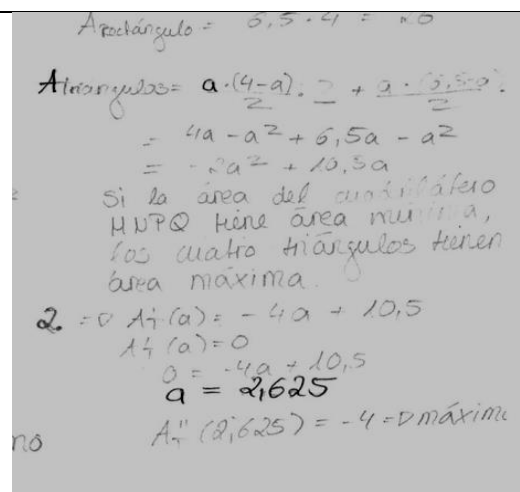 Arectángulo = 6,5 · 4 = 26
Atriángulos = a·(4-a)/2 · 2 + a·(6,5-a)/2 ·
= 4a - a² + 6,5a - a²
= -2a² + 10,5a
Si la área del cuadrilátero
MNPQ tiene área mínima,
los cuatro triángulos tienen
área máxima.
2. => A_T'(a) = -4a + 10,5
A_T'(a) = 0
0 = -4a + 10,5
a = 2,625
A_T''(2,625) = -4 => máximo
no